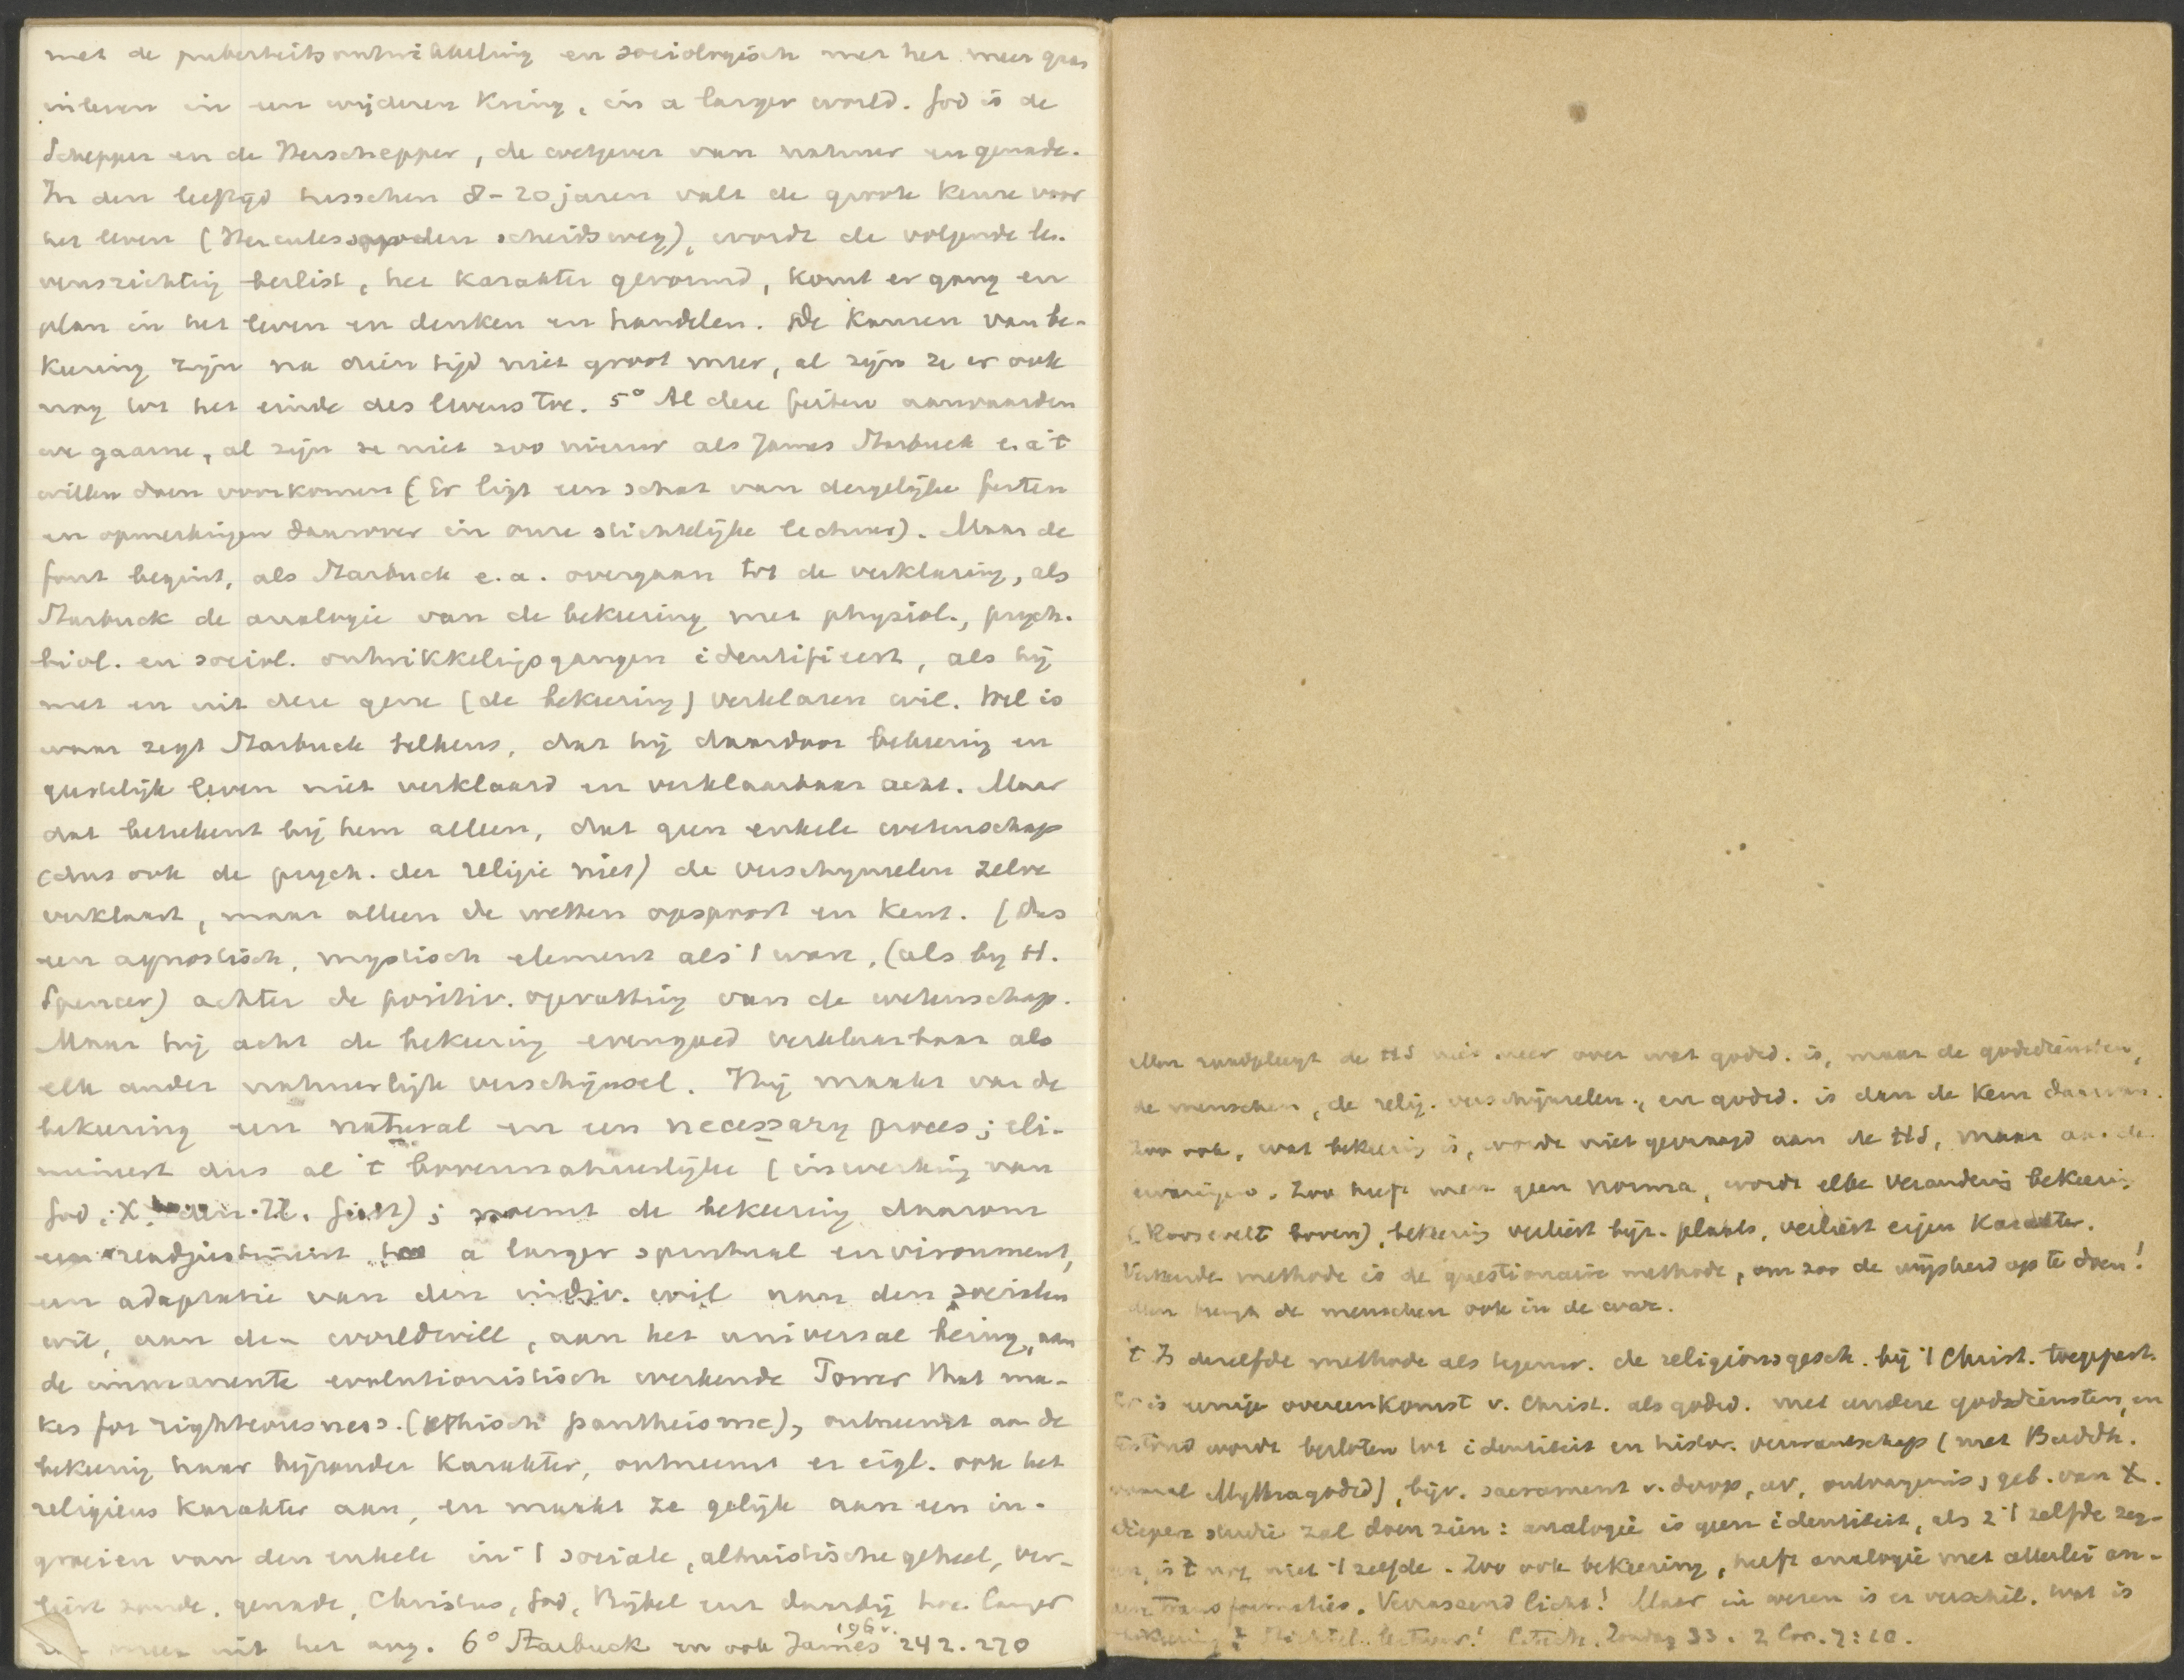 met de puberteitsontwikkeling en sociologisch met het meer gaan
inleven in een wijderen kring, in a larger world. God is de
Schepper en de Herschepper, de wetgever van natuur en genade.
In den leeftijd tusschen 8-20 jaren valt de groote keuze voor
het leven (Hercules op den scheidsweg), wordt de volgende le-
vensrichting beslist, het karakter gevormd, komt er gang en
plan in het leven en denken en handelen. De kansen van be-
keering zijn na dien tijd niet groot meer, al zijn ze er ook
nog tot het einde des levens toe. 5° Al deze feiten aanvaarden
we gaarne, al zijn ze niet zoo nieuw als James Starbuck e.a. 't
willen doen voorkomen (Er ligt een schat van dergelijke feiten
en opmerkingen daarover in onze stichtelijke lectuur). Maar de
fout begint, als Starbuck e.a. overgaan tot de verklaring, als
Starbuck de analogie van de bekeering met physiol., psych.
biol. en sociol. ontwikkelingsgangen identificeert, als hij
met en uit deze gene (de bekeering) verklaren wil. Wel is
waar zegt Starbuck telkens, dat hij daardoor bekeering en
geestelijk leven niet verklaard en verklaarbaar acht. Maar
dat beteekent bij hem alleen, dat geen enkele wetenschap
(dus ook de psych. der religie niet) de verschijnselen zelve
verklaart, maar alleen de wetten opspoort en kent. (Dus
een agnostisch, mystisch element als 't ware, (als by H.
Spencer) achter de positiv. opvatting van de wetenschap.
Maar hij acht de bekeering evengoed verklaarbaar als
elk ander natuurlijk verschijnsel. Hij maakt van de
bekeering een natural en een necessary proces; eli-
mineert dus al 't bovennatuurlijke (inwerking van
God, X, den H. Geest); noemt de bekeering daarom
een readjustment to a larger spiritual environment,
een adaptatie van den indiv. wil aan den socialen
wil, aan den worldwill, aan het universal being, aan
de immanente evolutionistisch werkende Power that ma-
kes for righteousness. (ethisch pantheisme), ontneemt aan de
bekeering haar bijzonder karakter, ontneemt er eigl. ook het
religieus karakter aan, en maakt ze gelijk aan een in-
groeien van den enkele in 't sociale, altruistische geheel, ver-
liest zonde, genade, Christus, God, Bijbel en daarbij hoe langer
meer uit het oog. 6° Starbuck en ook James 196v. 242. 270
Men raadpleegt de HS niet meer over wat godsd. is, maar de godsdiensten,
de menschen, de relig. verschijnselen, en godsd. is dan de kern daarvan.
Zoo ook, wat bekeering is, wordt niet gevraagd aan de HS, maar aan de
ervaringen. Zoo heeft men geen norma, wordt elke verandering bekeering
(Roosevelt boven), bekeering verliest bijz. plaats, verliest eigen karakter.
Verkeerde methode is de questionaire methode, om zoo de wijsheid op te doen!
Men brengt de menschen ook in de war.
't Is dezelfde methode als tegenw. de religionsgesch. bij 't Christ. toegepast.
Er is eenige overeenkomst v. Christ. als godsd. met andere godsdiensten, en
wordt besloten tot identiteit en histor. verwantschap (met Buddh.
vooral Mythragodsd), bijv. sacrament v. doop, av, ontvangenis, geb. van X.
dieper studie zal doen zien: analogie is geen identiteit, als 2 't zelfde zeg-
gen, is 't nog niet 't zelfde. Zoo ook bekeering, heeft analogie met allerlei an-
dere transformaties. Verrassend licht! Maar in wezen is er verschil. Wat is
bekeering? Stichtel. lectuur! Catech. Zondag 33. 2 Cor. 7:10.